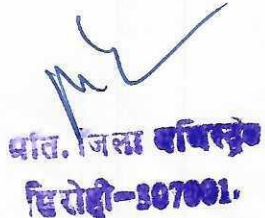 अति. जिला मजिस्ट्रेट
सिरोही-307001.